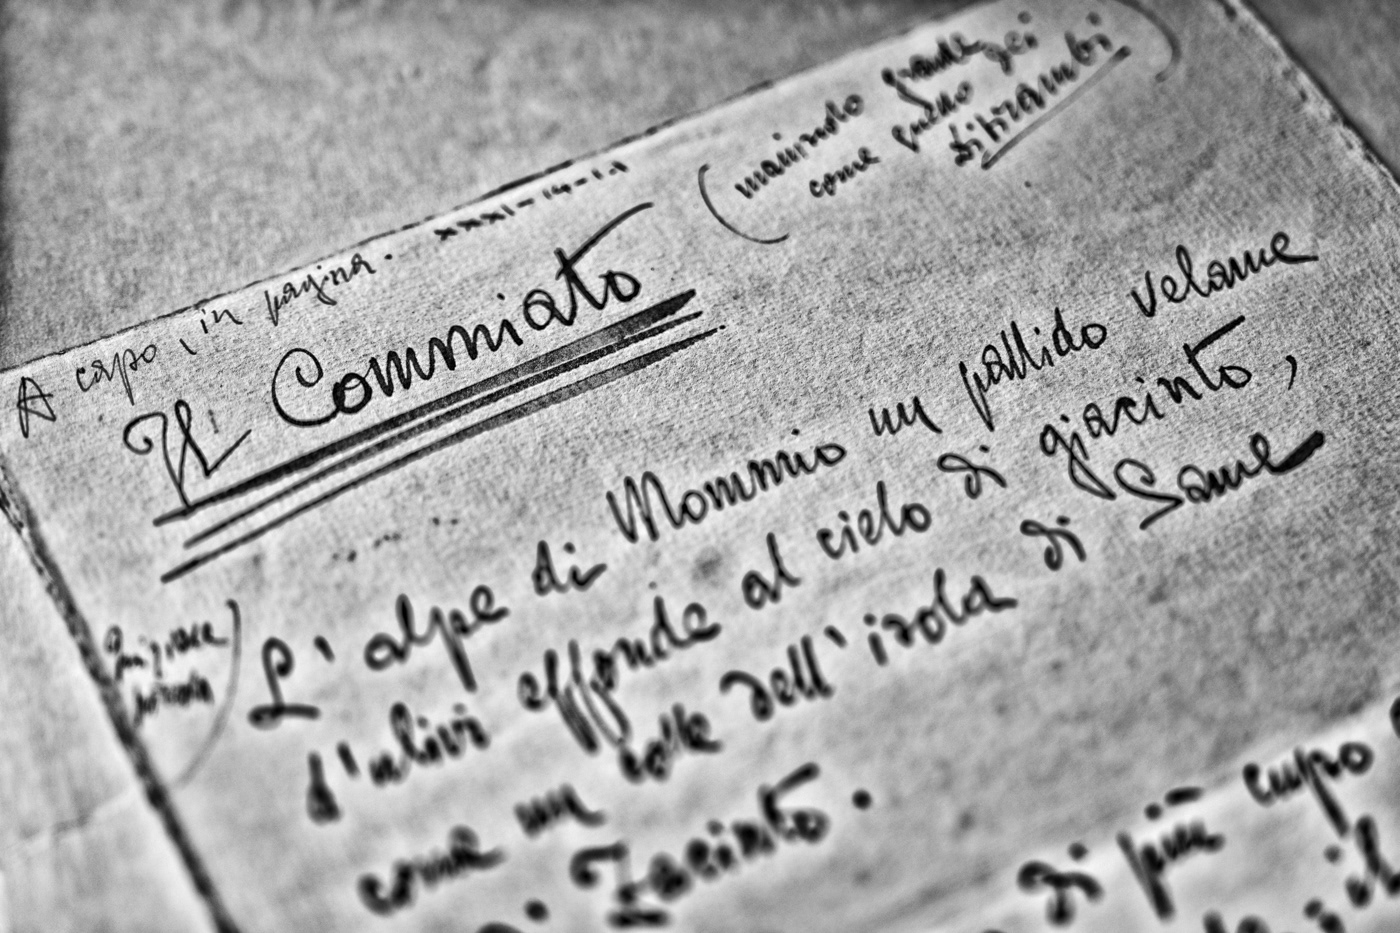 A capo, in pagina.
(maiuscolo grande
come quello dei
Ditirambi)
Il Commiato
Iniziale
L'alpe di Mommio un pallido velame
d'ulivi effonde al cielo di giacinto,
come un colle dell'isola di Same
di Zacinto.
Di più cupo